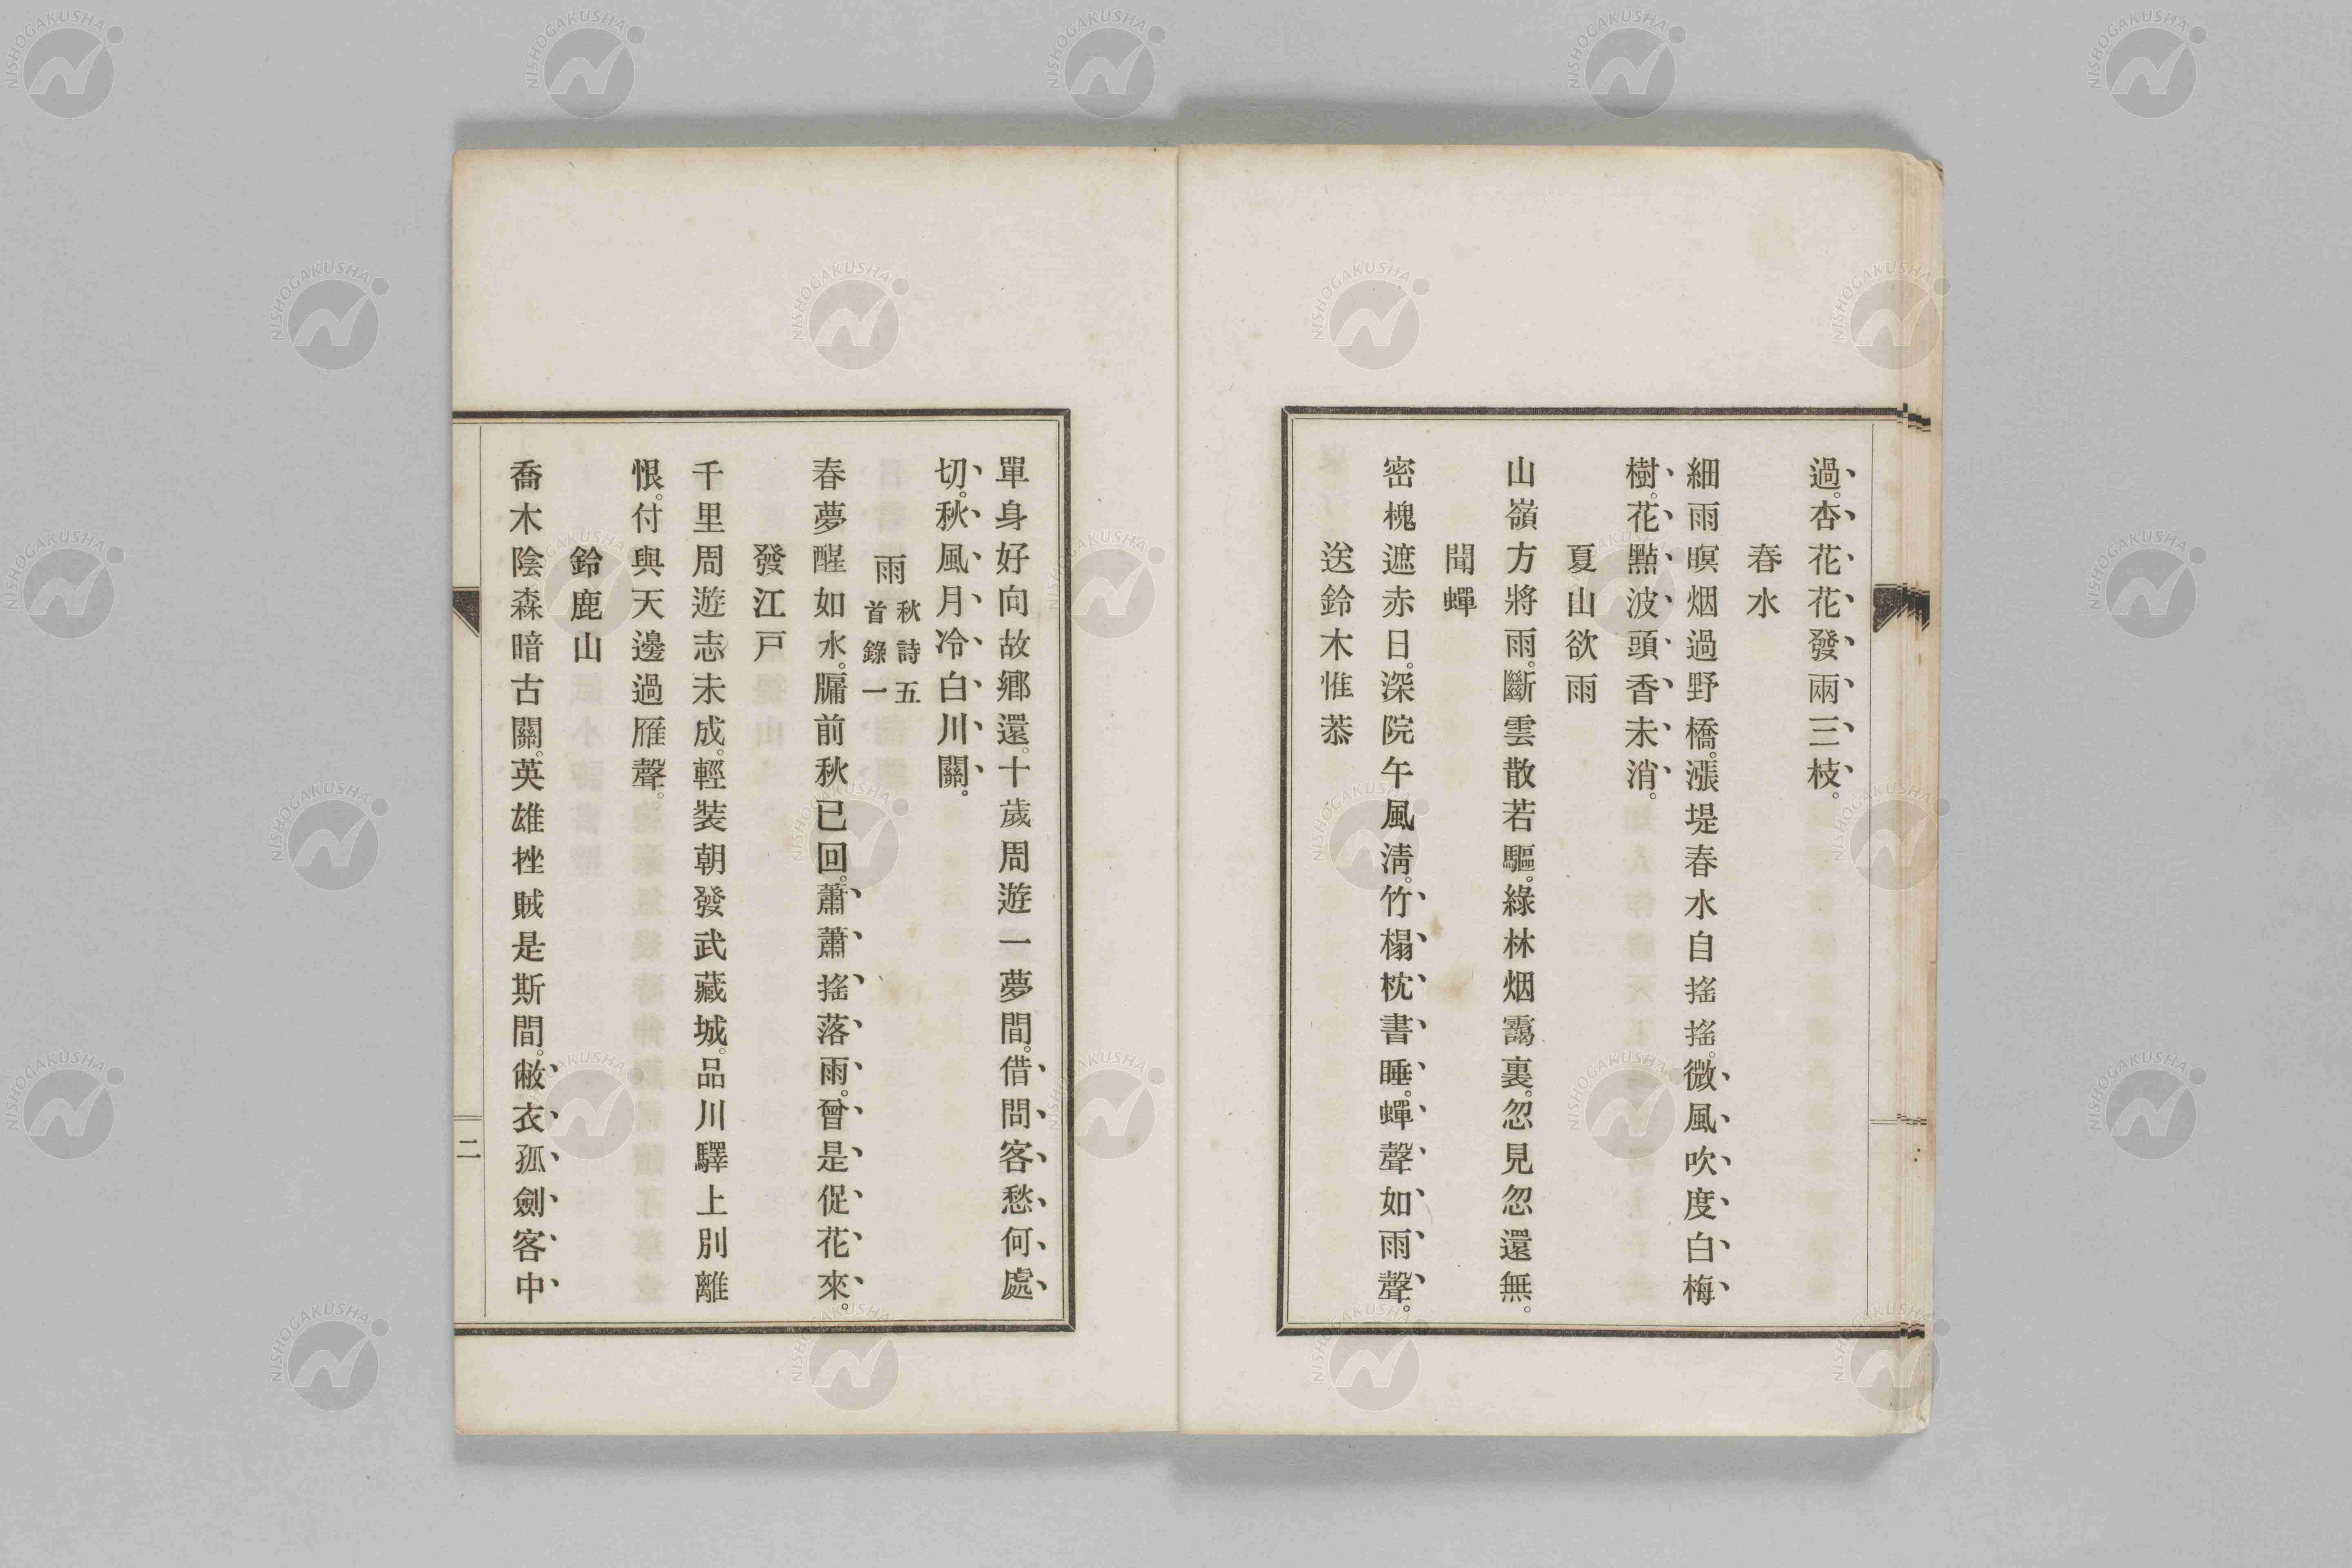 過。杏花花發兩三枝。
春水
細雨暝烟過野橋。漲堤春水自搖搖。微風吹度白梅
樹。花點波頭香未消。
夏山欲雨
山嶺方將雨。斷雲散若驅。綠林烟靄裏。忽見忽還無。
聞蟬
密槐遮赤日。深院午風淸。竹榻枕書睡。蟬聲如雨聲。
送鈴木惟恭
單身好向故鄉還。十歲周遊一夢間。借問客愁何處
切。秋風月冷白川關。
雨 秋詩五首錄一
春夢醒如水。牗前秋已回。蕭蕭搖落雨。曾是促花來。
發江戶
千里周遊志未成。輕裝朝發武藏城。品川驛上別離
恨。付與天邊過雁聲。
鈴鹿山
喬木陰森暗古關。英雄挫賊是斯間。敝衣孤劍客中
二
NISHOGAKUSHA